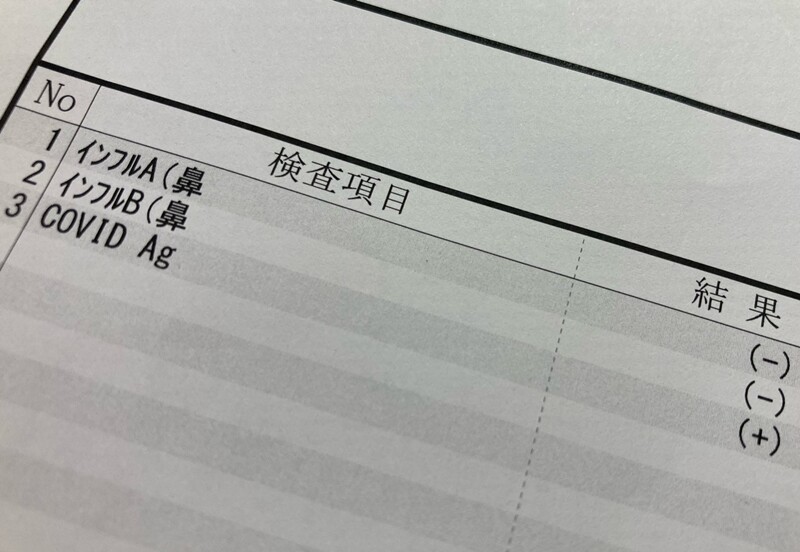 No 検査項目 結果
1 ｲﾝﾌﾙA(鼻 (-)
2 ｲﾝﾌﾙB(鼻 (-)
3 COVID Ag (+)